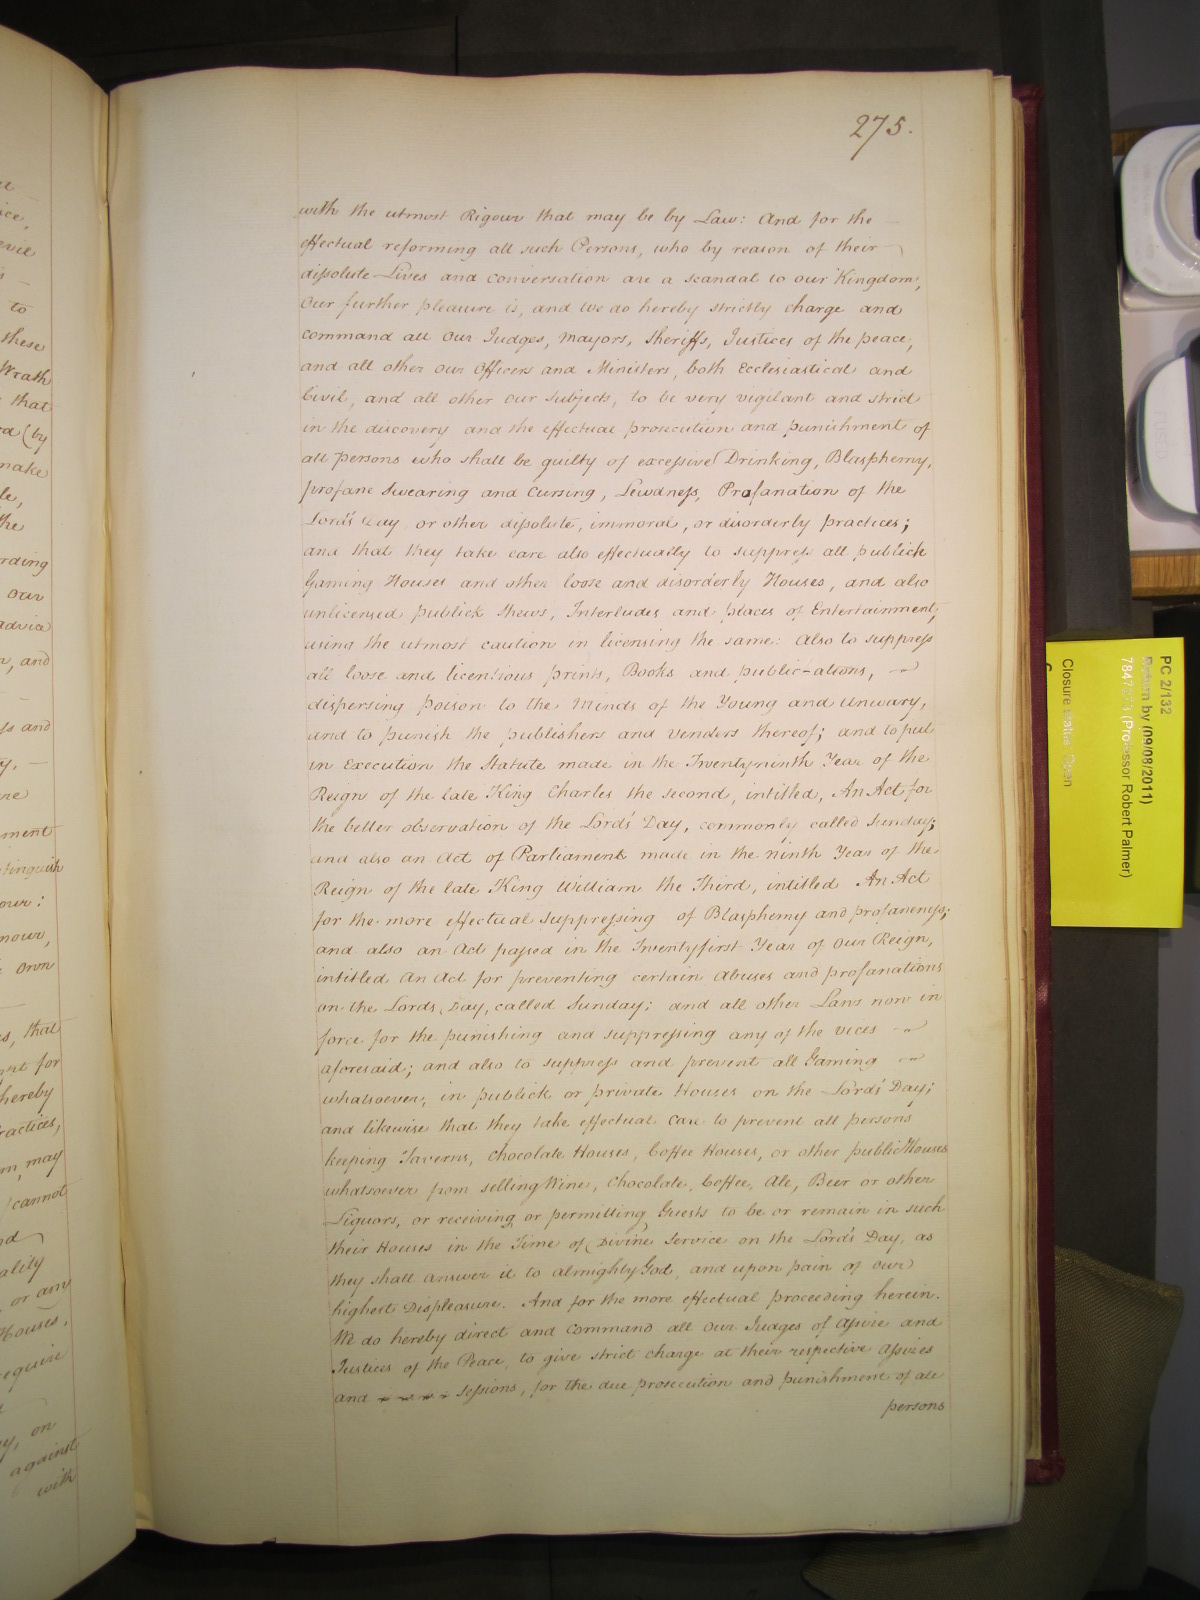 275.
with the utmost Rigour that may be by Law: And for the
effectual reforming all such Persons, who by reason of their
dissolute Lives and conversation are a scandal to our Kingdom,
Our further pleasure is, and We do hereby strictly charge and
command all Our Judges, Mayors, Sheriffs, Justices of the peace,
and all other our Officers and Ministers, both Ecclesiastical and
Civil, and all other our Subjects, to be very vigilant and strict
in the discovery and the effectual prosecution and punishment of
all persons who shall be guilty of excessive Drinking, Blasphemy,
profane Swearing and Cursing, Lewdness, Profanation of the
Lord's Day, or other dissolute, immoral, or disorderly practices;
and that they take care also effectually to suppress all publick
Gaming Houses and other loose and disorderly Houses, and also
unlicensed publick Shews, Interludes and places of Entertainment,
using the utmost caution in licensing the same: Also to suppress
all loose and licentious prints, Books and public-ations,
dispersing poison to the Minds of the Young and Unwary,
and to punish the publishers and venders thereof; and to put
in Execution the Statute made in the Twentyninth Year of the
Reign of the late King Charles the second, intitled, An Act for
the better observation of the Lord's Day, commonly called Sunday;
and also an Act of Parliament made in the ninth Year of the
Reign of the late King William the Third, intitled An Act
for the more effectual suppressing of Blasphemy and profaneness;
and also an Act passed in the Twentyfirst Year of Our Reign,
intitled An Act for preventing certain Abuses and profanations
on the Lords Day, called Sunday; and all other Laws now in
force for the punishing and suppressing any of the vices
aforesaid; and also to suppress and prevent all Gaming
whatsoever, in publick or private Houses on the Lord's Day;
and likewise that they take effectual care to prevent all persons
keeping Taverns, Chocolate Houses, Coffee Houses, or other public Houses
whatsoever from selling Wine, Chocolate, Coffee, Ale, Beer or other
Liquors, or receiving or permitting Guests to be or remain in such
their Houses in the Time of Divine Service on the Lord's Day, as
they shall answer it to Almighty God, and upon pain of our
highest Displeasure. And for the more effectual proceeding herein.
We do hereby direct and Command all Our Judges of Assize and
Justices of the Peace, to give strict charge at their respective Assizes
and Sessions, for the due prosecution and punishment of all
persons
to
these
Wrath
that
(by
make
the
our
advice
and
and
own
that
for
hereby
may
cannot
or any
Houses,
on
against
with
PC 2/132
Return by (09/08/2011)
(Professor Robert Palmer)
Closure status: Open